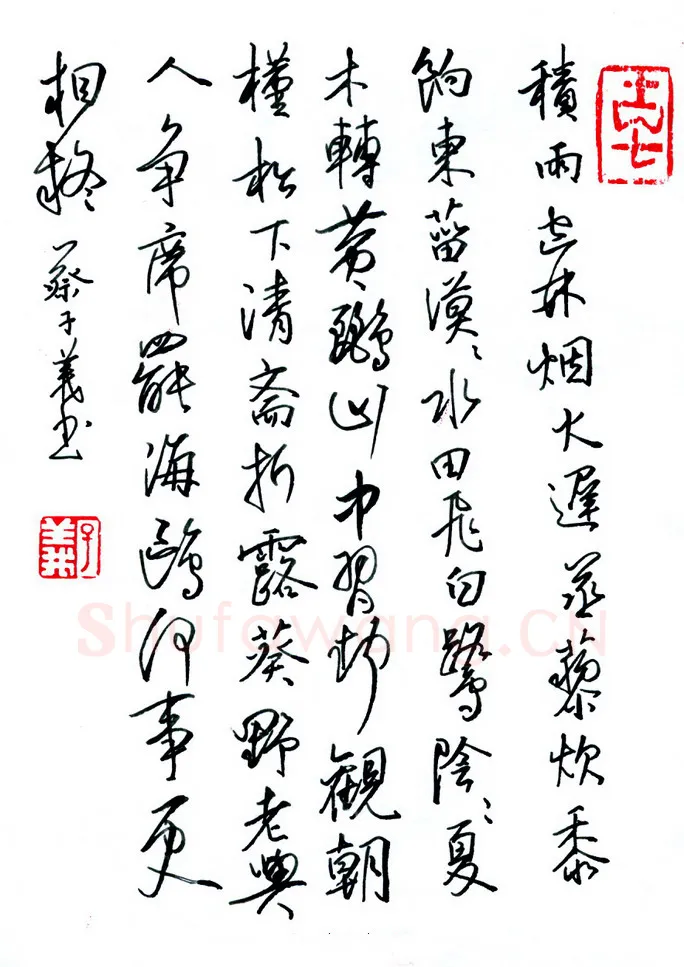 積雨空林烟火遲蒸藜炊黍
餉東菑漠〻水田飛白鷺陰〻夏
木轉黄鸝山中習静觀朝
槿松下清斋折露葵野老與
人争席罷海鷗何事更
相疑 蔡子義书
子義
Shufawang.CN